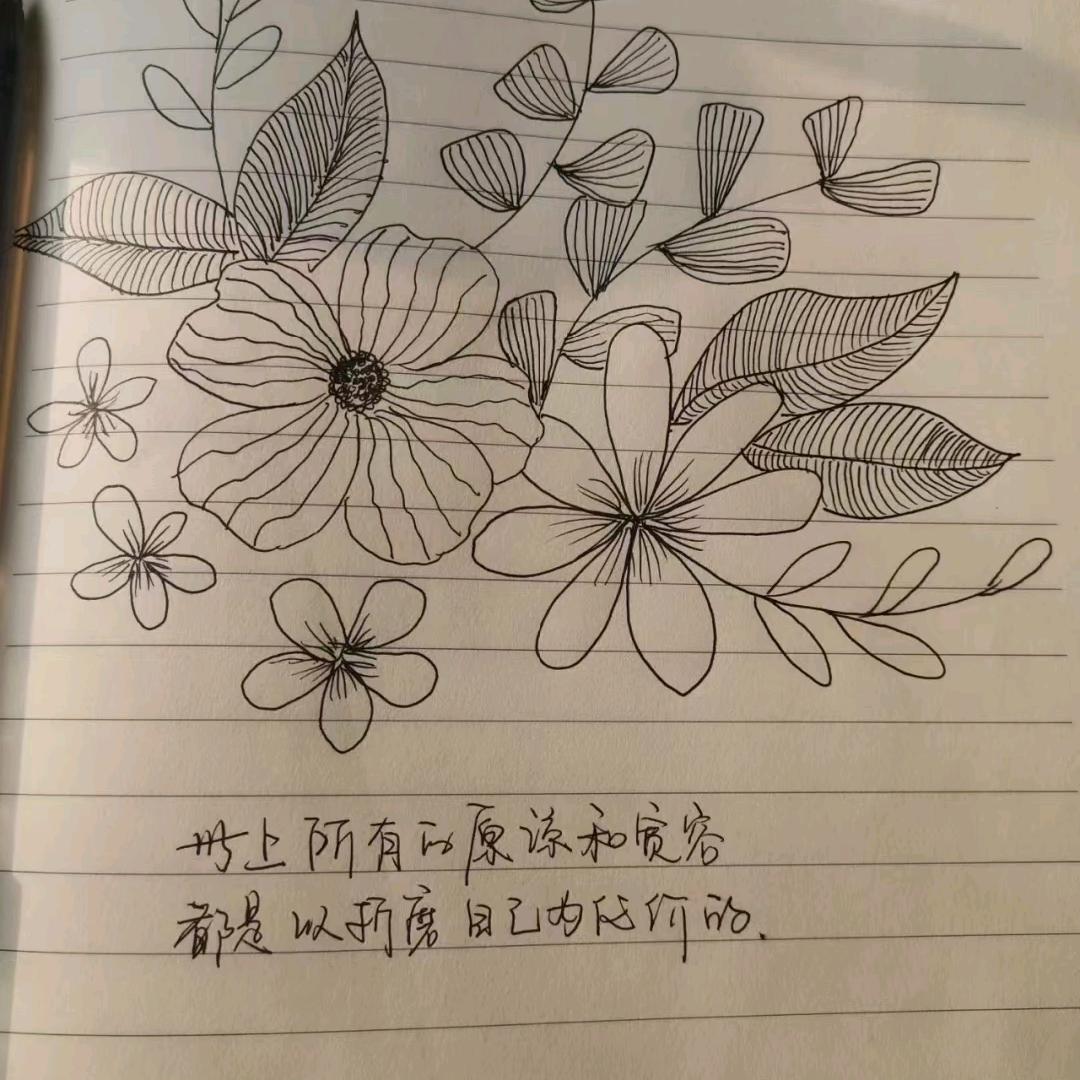 世上所有的原谅和宽容
都是以折磨自己为代价的.